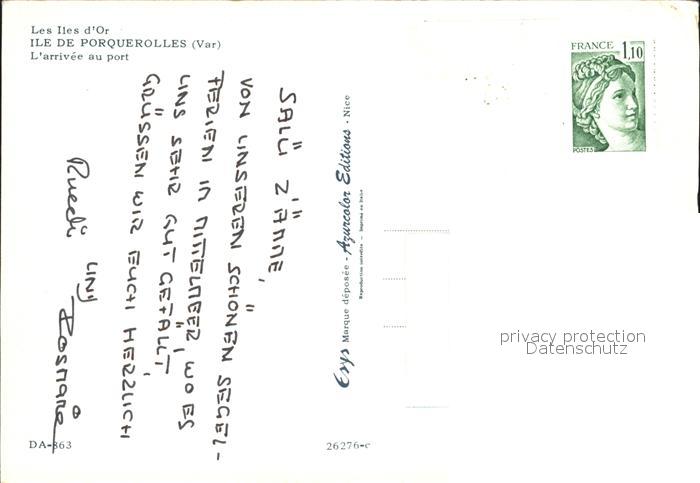 Les Iles d'Or
ILE DE PORQUEROLLES (Var)
L'arrivée au port
FRANCE 1,10
POSTES
SALÜ Z'ÄMME,
VON UNSEREN SCHÖNEN SEGEL-
FERIEN IM MITTELMEER, WO ES
UNS SEHR GUT GEFÄLLT,
GRÜSSEN WIR EUCH HERZLICH
Ruedi und
Rosmarie
Esys Marque déposée - Azurcolor Editions - Nice
Reproduction interdite - Imprimé en Italie
privacy protection
Datenschutz
DA-863
26276-c